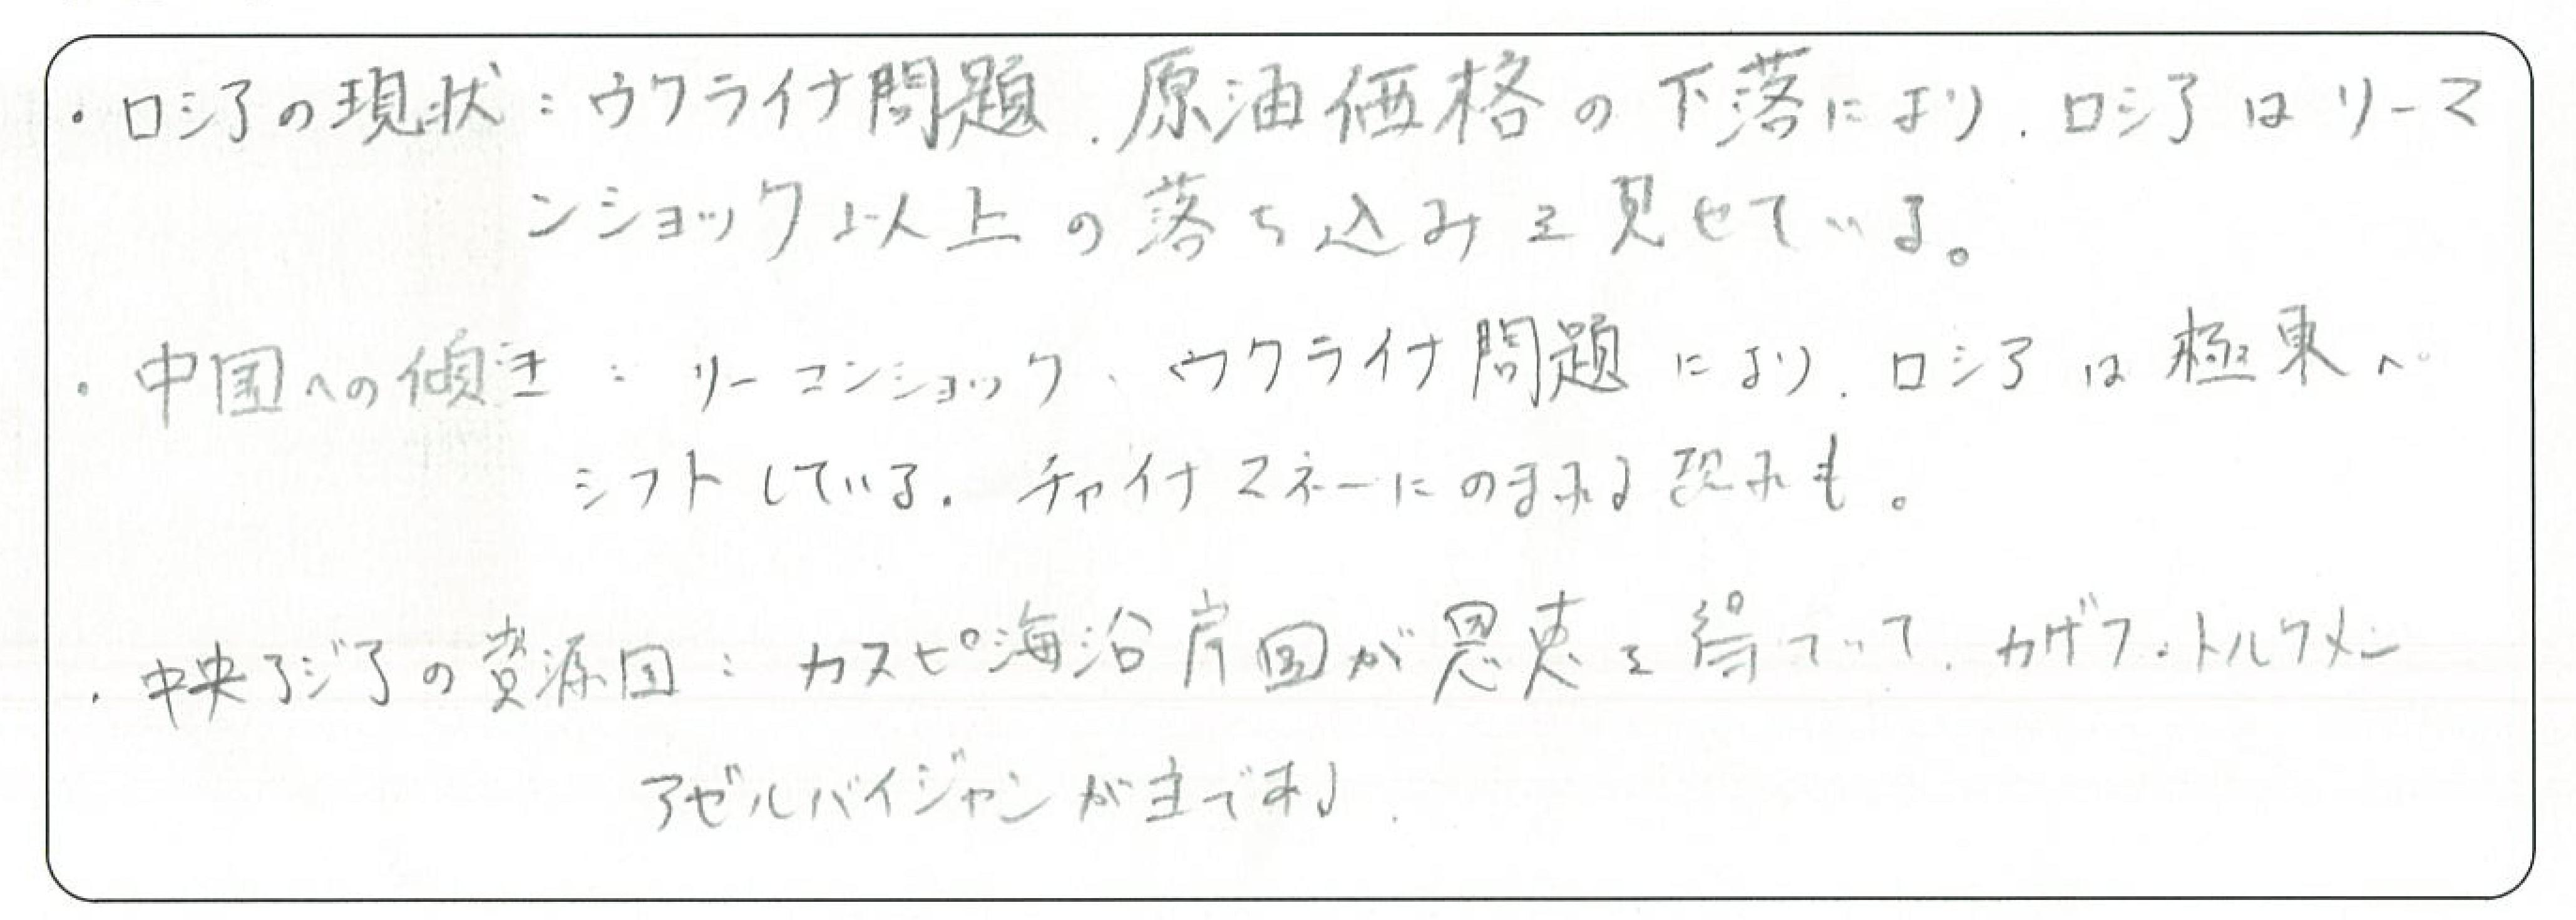 ・ロシアの現状：ウクライナ問題、原油価格の下落により、ロシアはリーマ
ンショック以上の落ち込みを見せている。
・中国への傾き：リーマンショック、ウクライナ問題により、ロシアは極東へ
シフトしている。チャイナマネーにのまれる恐れも。
・中央アジアの資源国：カスピ海沿岸国が恩恵を得ていて、カザフ・トルクメン
アゼルバイジャンが主であり、